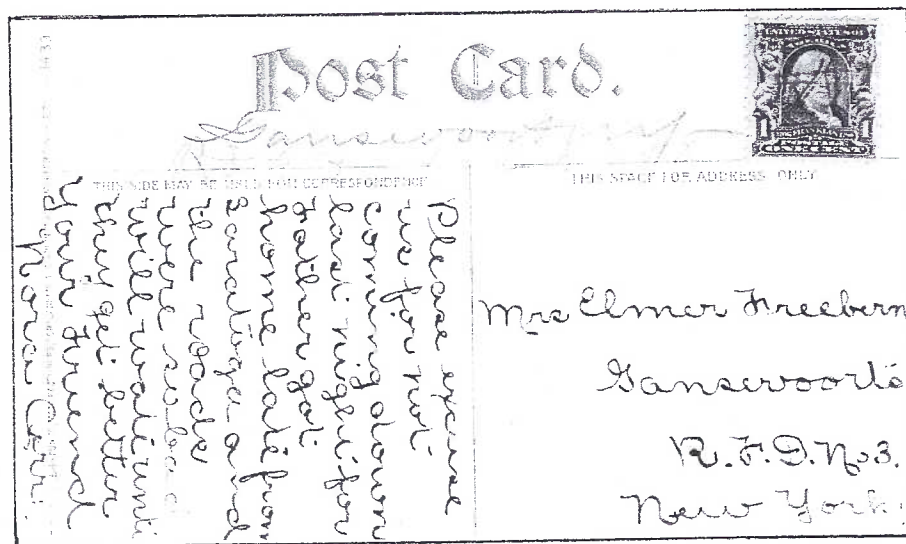 Post Card.
UNITED STATES OF
AMERICA
1 1
ONE CENT
Gansevoort
THIS SIDE MAY BE USED FOR CORRESPONDENCE
THIS SPACE FOR ADDRESS ONLY
Please excuse
us for not
coming down
last night for
Father got
home late from
Saratoga and
the roads
were so bad
will wait unti
they get better
Your Friend
Nora Carr.
Mrs Elmer Freebern
Gansevoort
R.F.D. No 3.
New York